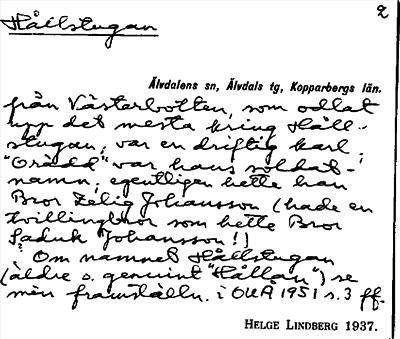 2
Hållstugan
Älvdalens sn, Älvdals tg, Kopparbergs län.
från Västerbotten, som odlat
upp det mesta kring Håll-
stugan, var en driftig karl;
"Orädd" var hans soldat-
namn, egentligen hette han
Bror Zelig Johansson (hade en
tvillingbror som hette Bror
Saduk Johansson!)
Om namnet Hållstugan
(äldre o. genuint "Hållan") se
min framställn. i OUÅ 1951 s. 3 ff.
HELGE LINDBERG 1937.